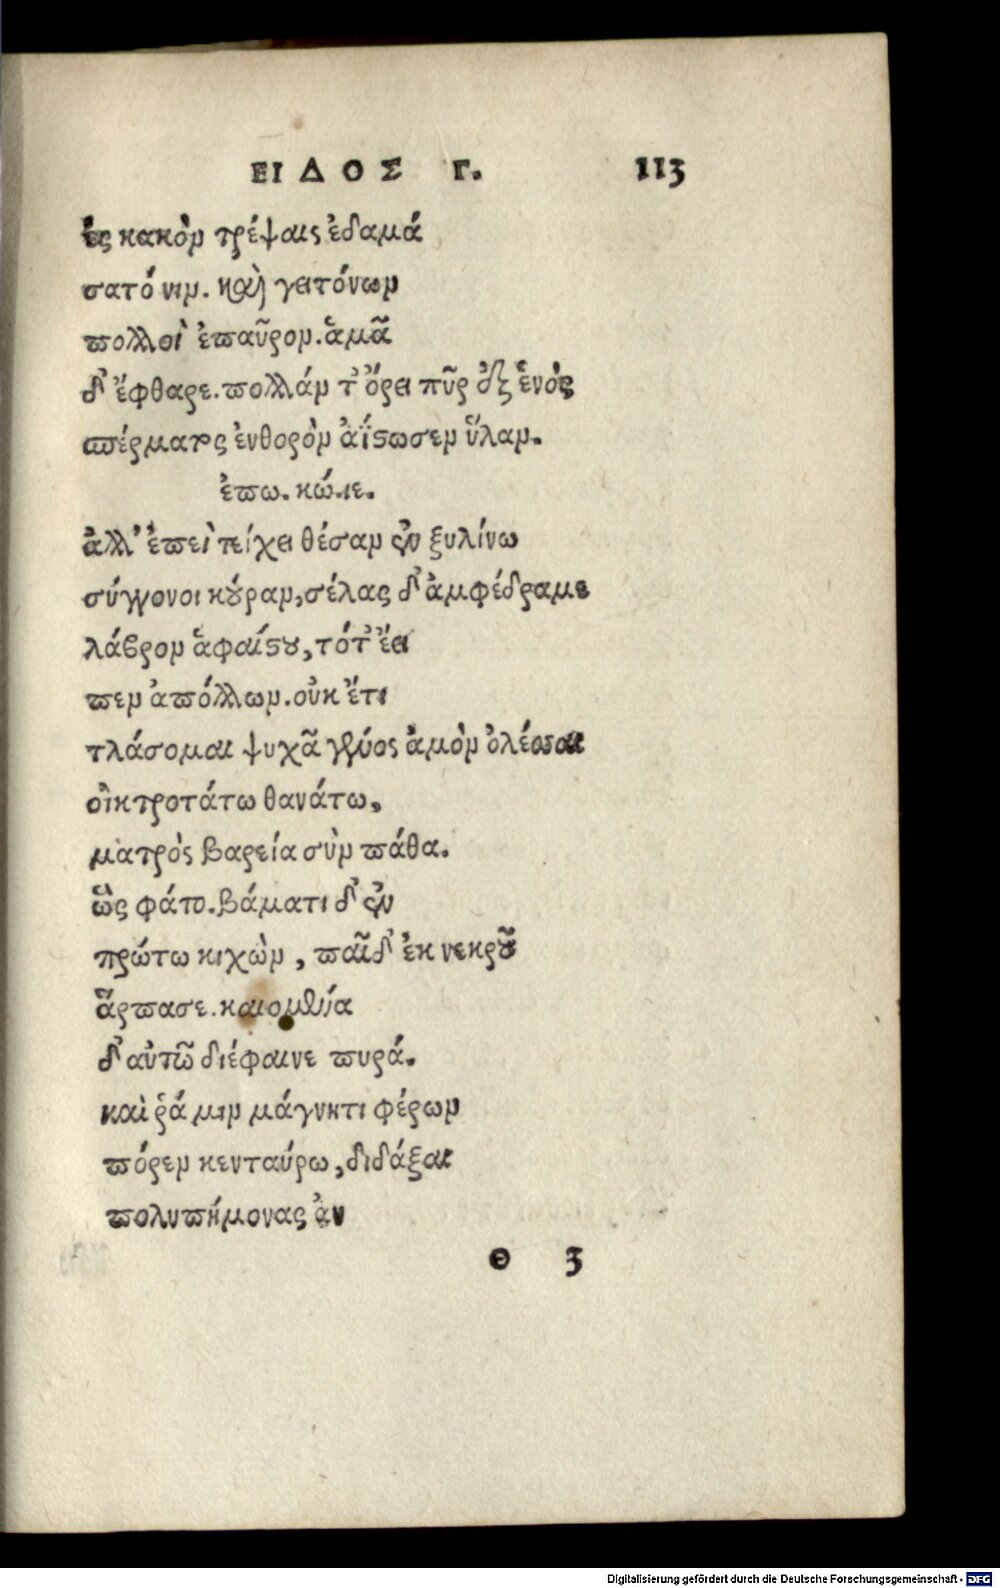 ΕΙΔΟΣ Γ. 113
ἐς κακὸν τρέψαις ἐδαμά
σατό νιν. καὶ γειτόνων
πολλοὶ ἐπαῦρον. ἁμᾶ
δ' ἔφθαρε. πολλάν τ' ὄρει πῦρ ἐξ ἑνὸς
σπέρματος ἐνθορὸν ἀΐστωσεν ὕλαν.
ἐπω. κώ. ιε.
ἀλλ' ἐπεὶ τείχει θέσαν ἐν ξυλίνω
σύγγονοι κούραν, σέλας δ' ἀμφέδραμε
λάβρον ἁφαίστου, τότ' ἔει
πεν ἀπόλλων. οὐκ ἔτι
τλάσομαι ψυχᾶ γένος ἁμὸν ὀλέσσαι
οἰκτροτάτω θανάτω,
ματρὸς βαρεία σὺν πάθα.
ὣς φάτο. βάματι δ' ἐν
πρώτω κιχὼν, παῖδ' ἐκ νεκροῦ
ἅρπασε. καιομένα
δ' αὐτῶ διέφαινε πυρά.
καὶ ῥά μιν μάγνητι φέρων
πόρεν κενταύρω, διδάξαι
πολυπήμονας ἀν
Θ 3
Digitalisierung gefördert durch die Deutsche Forschungsgemeinschaft - DFG